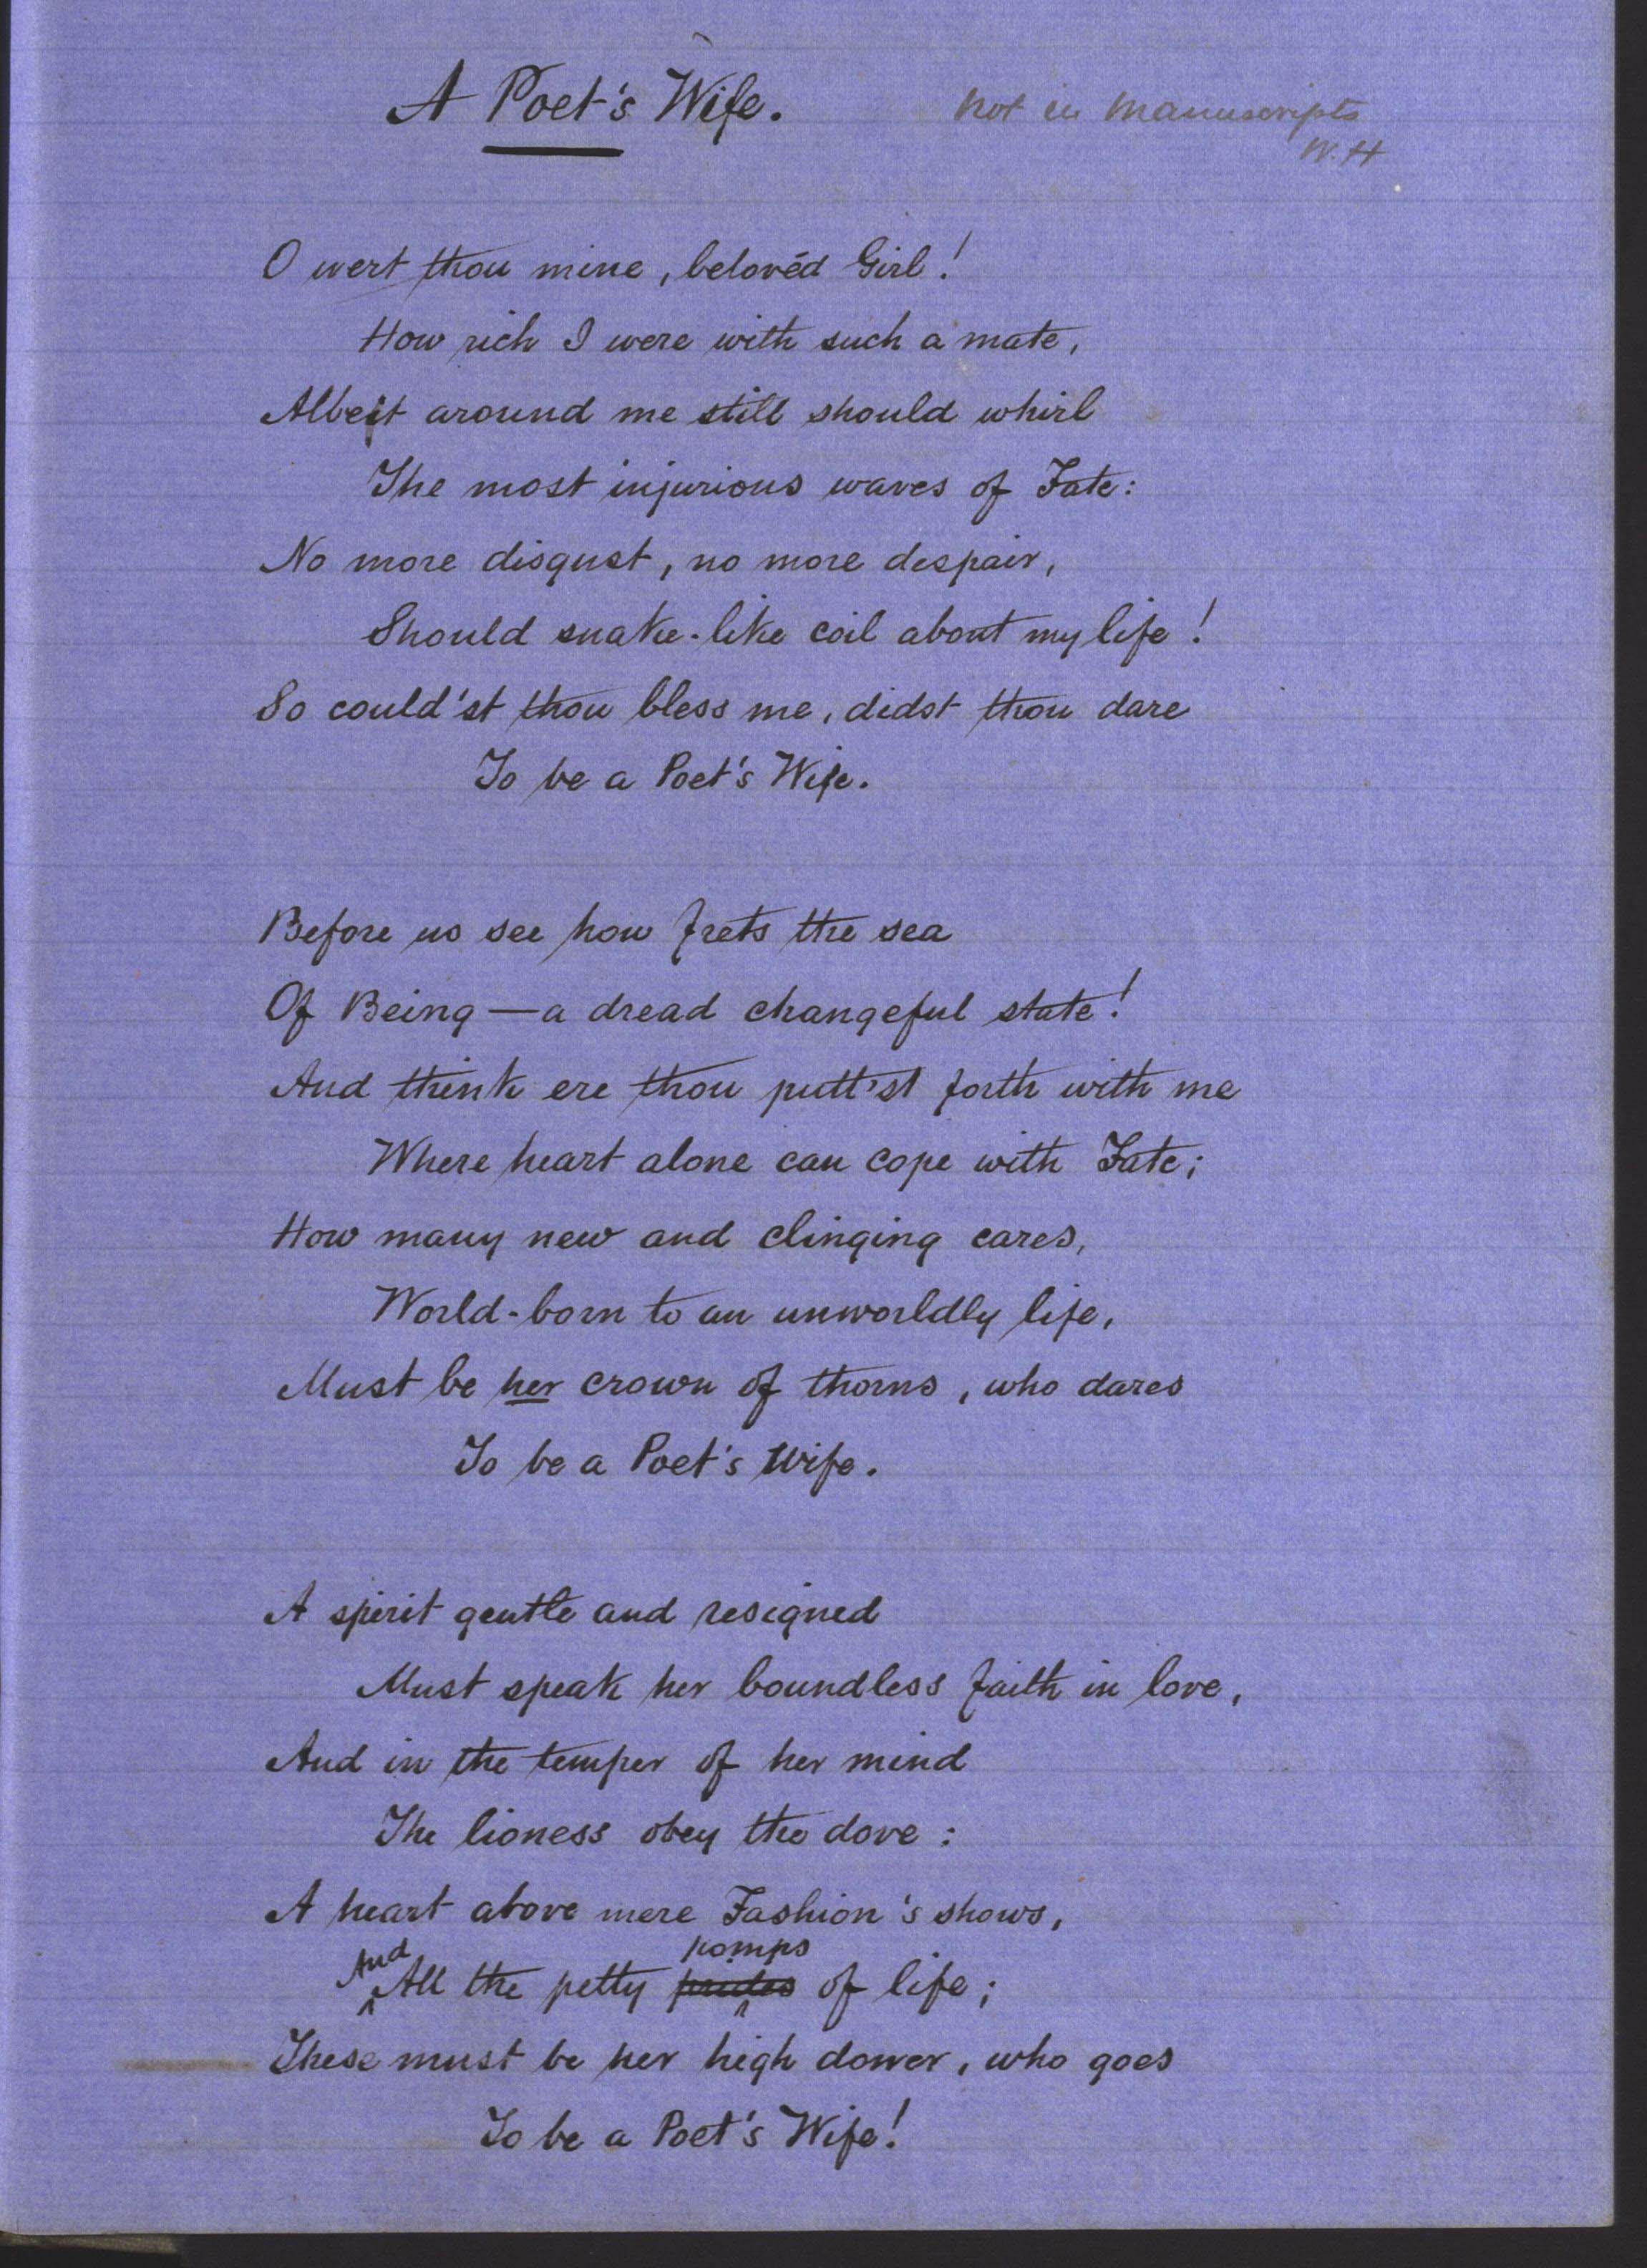 A Poet's Wife.
Not in Manuscripts
W. H
O wert thou mine, belovéd Girl!
How rich I were with such a mate,
Albeit around me still should whirl
The most injurious waves of Fate:
No more disgust, no more despair,
Should snake-like coil about my life!
So could'st thou bless me, didst thou dare
To be a Poet's Wife.
Before us see how frets the sea
Of Being—a dread changeful state!
And think ere thou putt'st forth with me
Where heart alone can cope with Fate;
How many new and clinging cares,
World-born to an unworldly life,
Must be her crown of thorns, who dares
To be a Poet's Wife.
A spirit gentle and resigned
Must speak her boundless faith in love,
And in the temper of her mind
The lioness obey the dove:
A heart above mere Fashion's shows,
And pomps
All the petty prides of life;
These must be her high dower, who goes
To be a Poet's Wife!